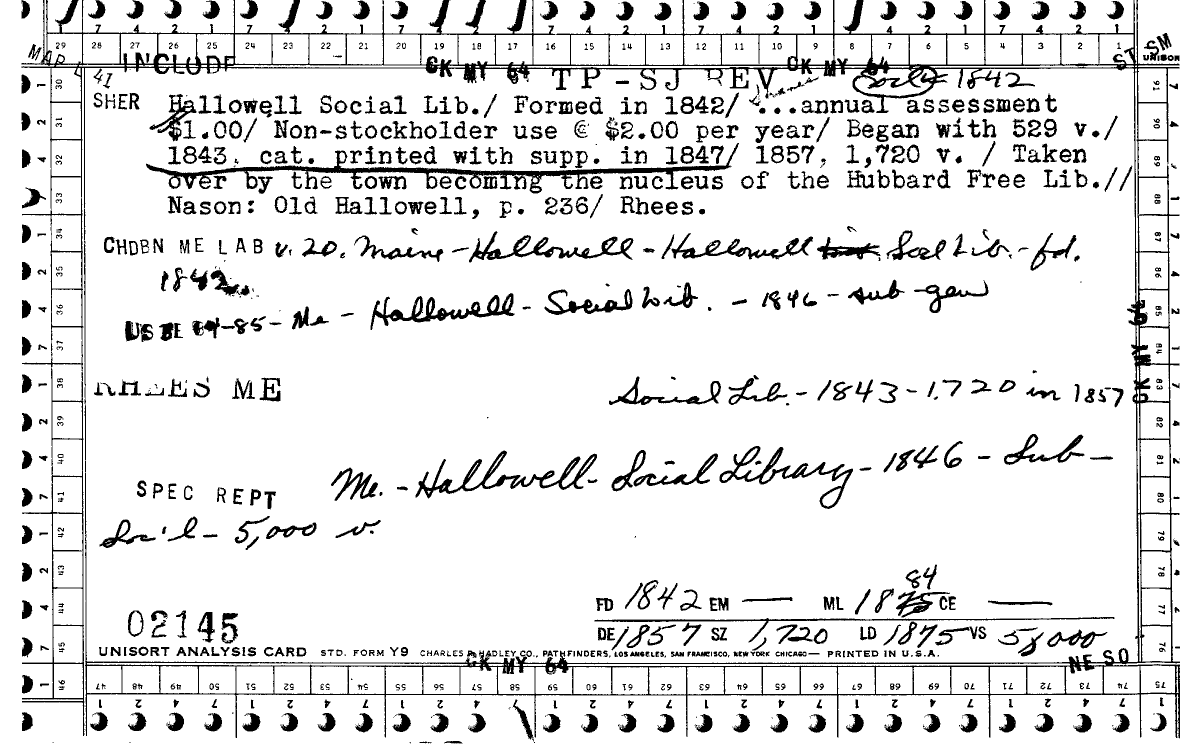 7 4 2 1 7 4 2 1 7 4 2 1 7 4 2 1 7 4 2 1 7 4 2 1 7 4 2 1
29 28 27 26 25 24 23 22 21 20 19 18 17 16 15 14 13 12 11 10 9 8 7 6 5 4 3 2 1
INCLUDE GK MY 64 TP-SJ REV GK MY 64 Soc'l 1842 ST SM
41
SHER Hallowell Social Lib./ Formed in 1842/ ...annual assessment
$1.00/ Non-stockholder use @ $2.00 per year/ Began with 529 v./
1843, cat. printed with supp. in 1847/ 1857, 1,720 v. / Taken
over by the town becoming the nucleus of the Hubbard Free Lib.//
Nason: Old Hallowell, p. 236/ Rhees.
CHDBN ME LAB v. 20. Maine-Hallowell-Hallowell Socl Lib.-fd.
1842
US BE 84-85-Me-Hallowell-Social Lib. - 1846 - sub-gen
RHEES ME Social Lib.-1843-1,720 in 1857
SPEC REPT Me.-Hallowell-Social Library-1846-Sub-
Soc'l-5,000 v.
84
FD 1842 EM — ML 1875 CE —
02145
DE 1857 SZ 1,720 LD 1875 VS 5,000
UNISORT ANALYSIS CARD STD. FORM Y9 CHARLES R. HADLEY CO., PATHFINDERS, LOS ANGELES, SAN FRANCISCO, NEW YORK CHICAGO— PRINTED IN U.S.A.
GK MY 64 NE SO
46 47 48 49 50 51 52 53 54 55 56 57 58 59 60 61 62 63 64 65 66 67 68 69 70 71 72 73 74 75